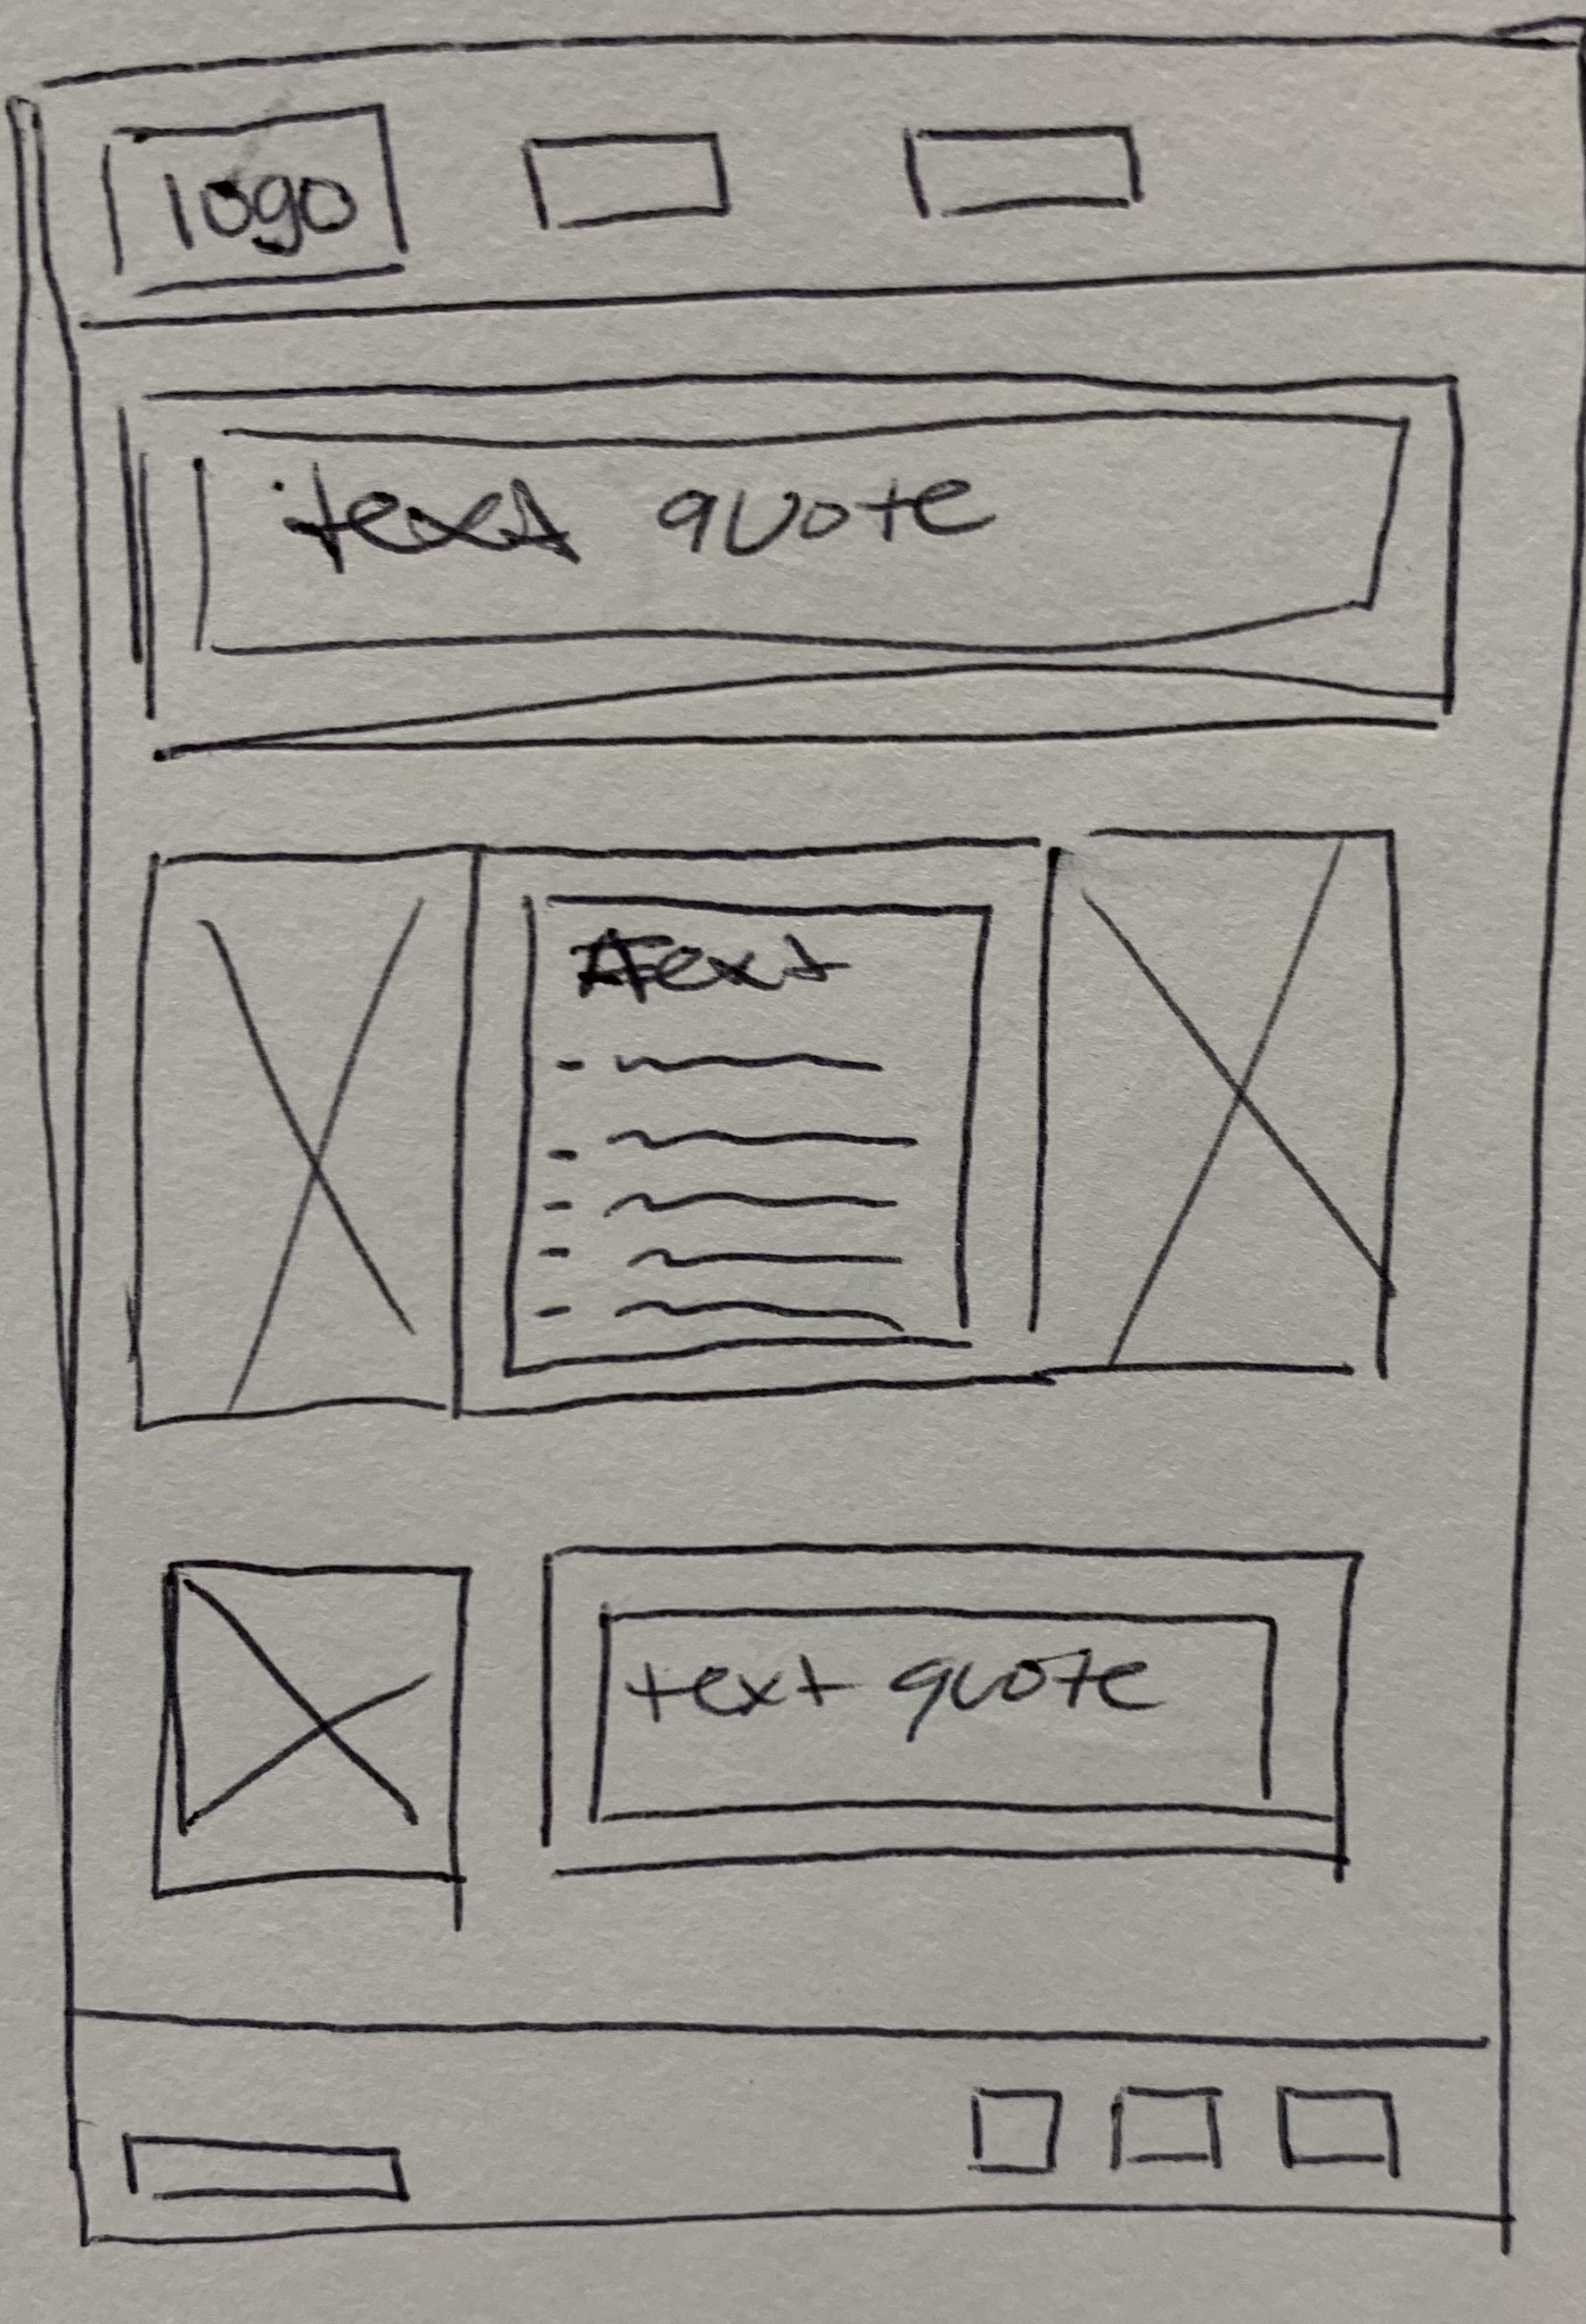 logo
text quote
text
text quote